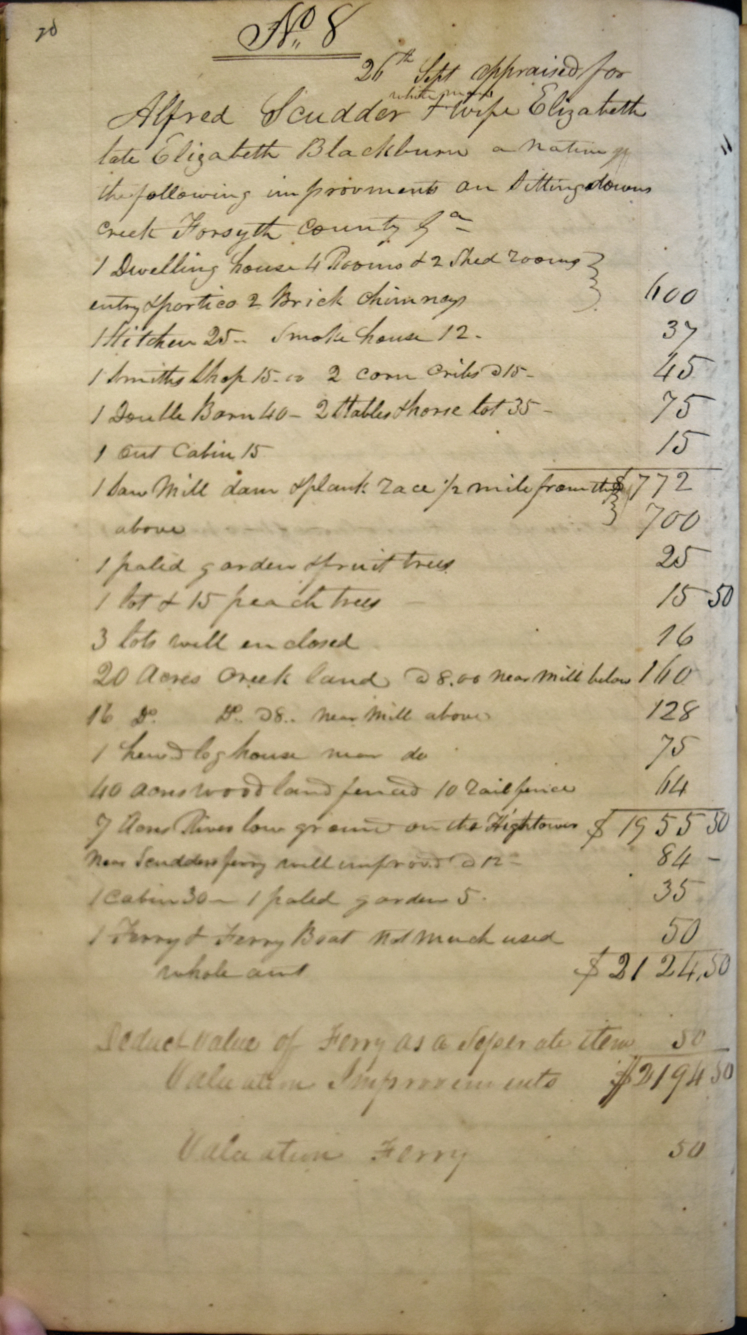 28
No 8
26th Sept appraised for
white man
Alfred Scudder & wife Elizabeth
late Elizabeth Blackburn a native
the following improvments on Sittingdowns
creek Forsyth county Ga
1 Dwelling house 4 Rooms & 2 Shed rooms
entry & portico 2 Brick chimneys 600
1 Kitchen 25 - Smoke house 12 - 37
1 Smiths Shop 15.00 2 corn cribs @ 15 - 45
1 Double Barn 40 - 2 Stables & horse lot 35 - 75
1 out Cabin 15 15
1 Saw Mill dam & plank race 1/2 mile from the $772
above 700
1 palid garden & fruit trees 25
1 lot & 15 peach trees - 15 50
3 lots well enclosed 16
20 Acres creek land @ 8.00 near Mill below 160
16 Do. Do. @ 8.. near Mill above 128
1 hewd log house near do 75
40 acres wood land fenced 10 rail fence 64
7 Acres River low ground on the Hightower $1955 50
near Scudders ferry well improvd @ 12 = 84 -
1 Cabin 30 - 1 paled garden 5. 35
1 Ferry & Ferry Boat not much used 50
whole amt $2124,50
Deduct value of Ferry as a Seperate item 50
Valuation Improvements $2194 50
Valuation Ferry 50